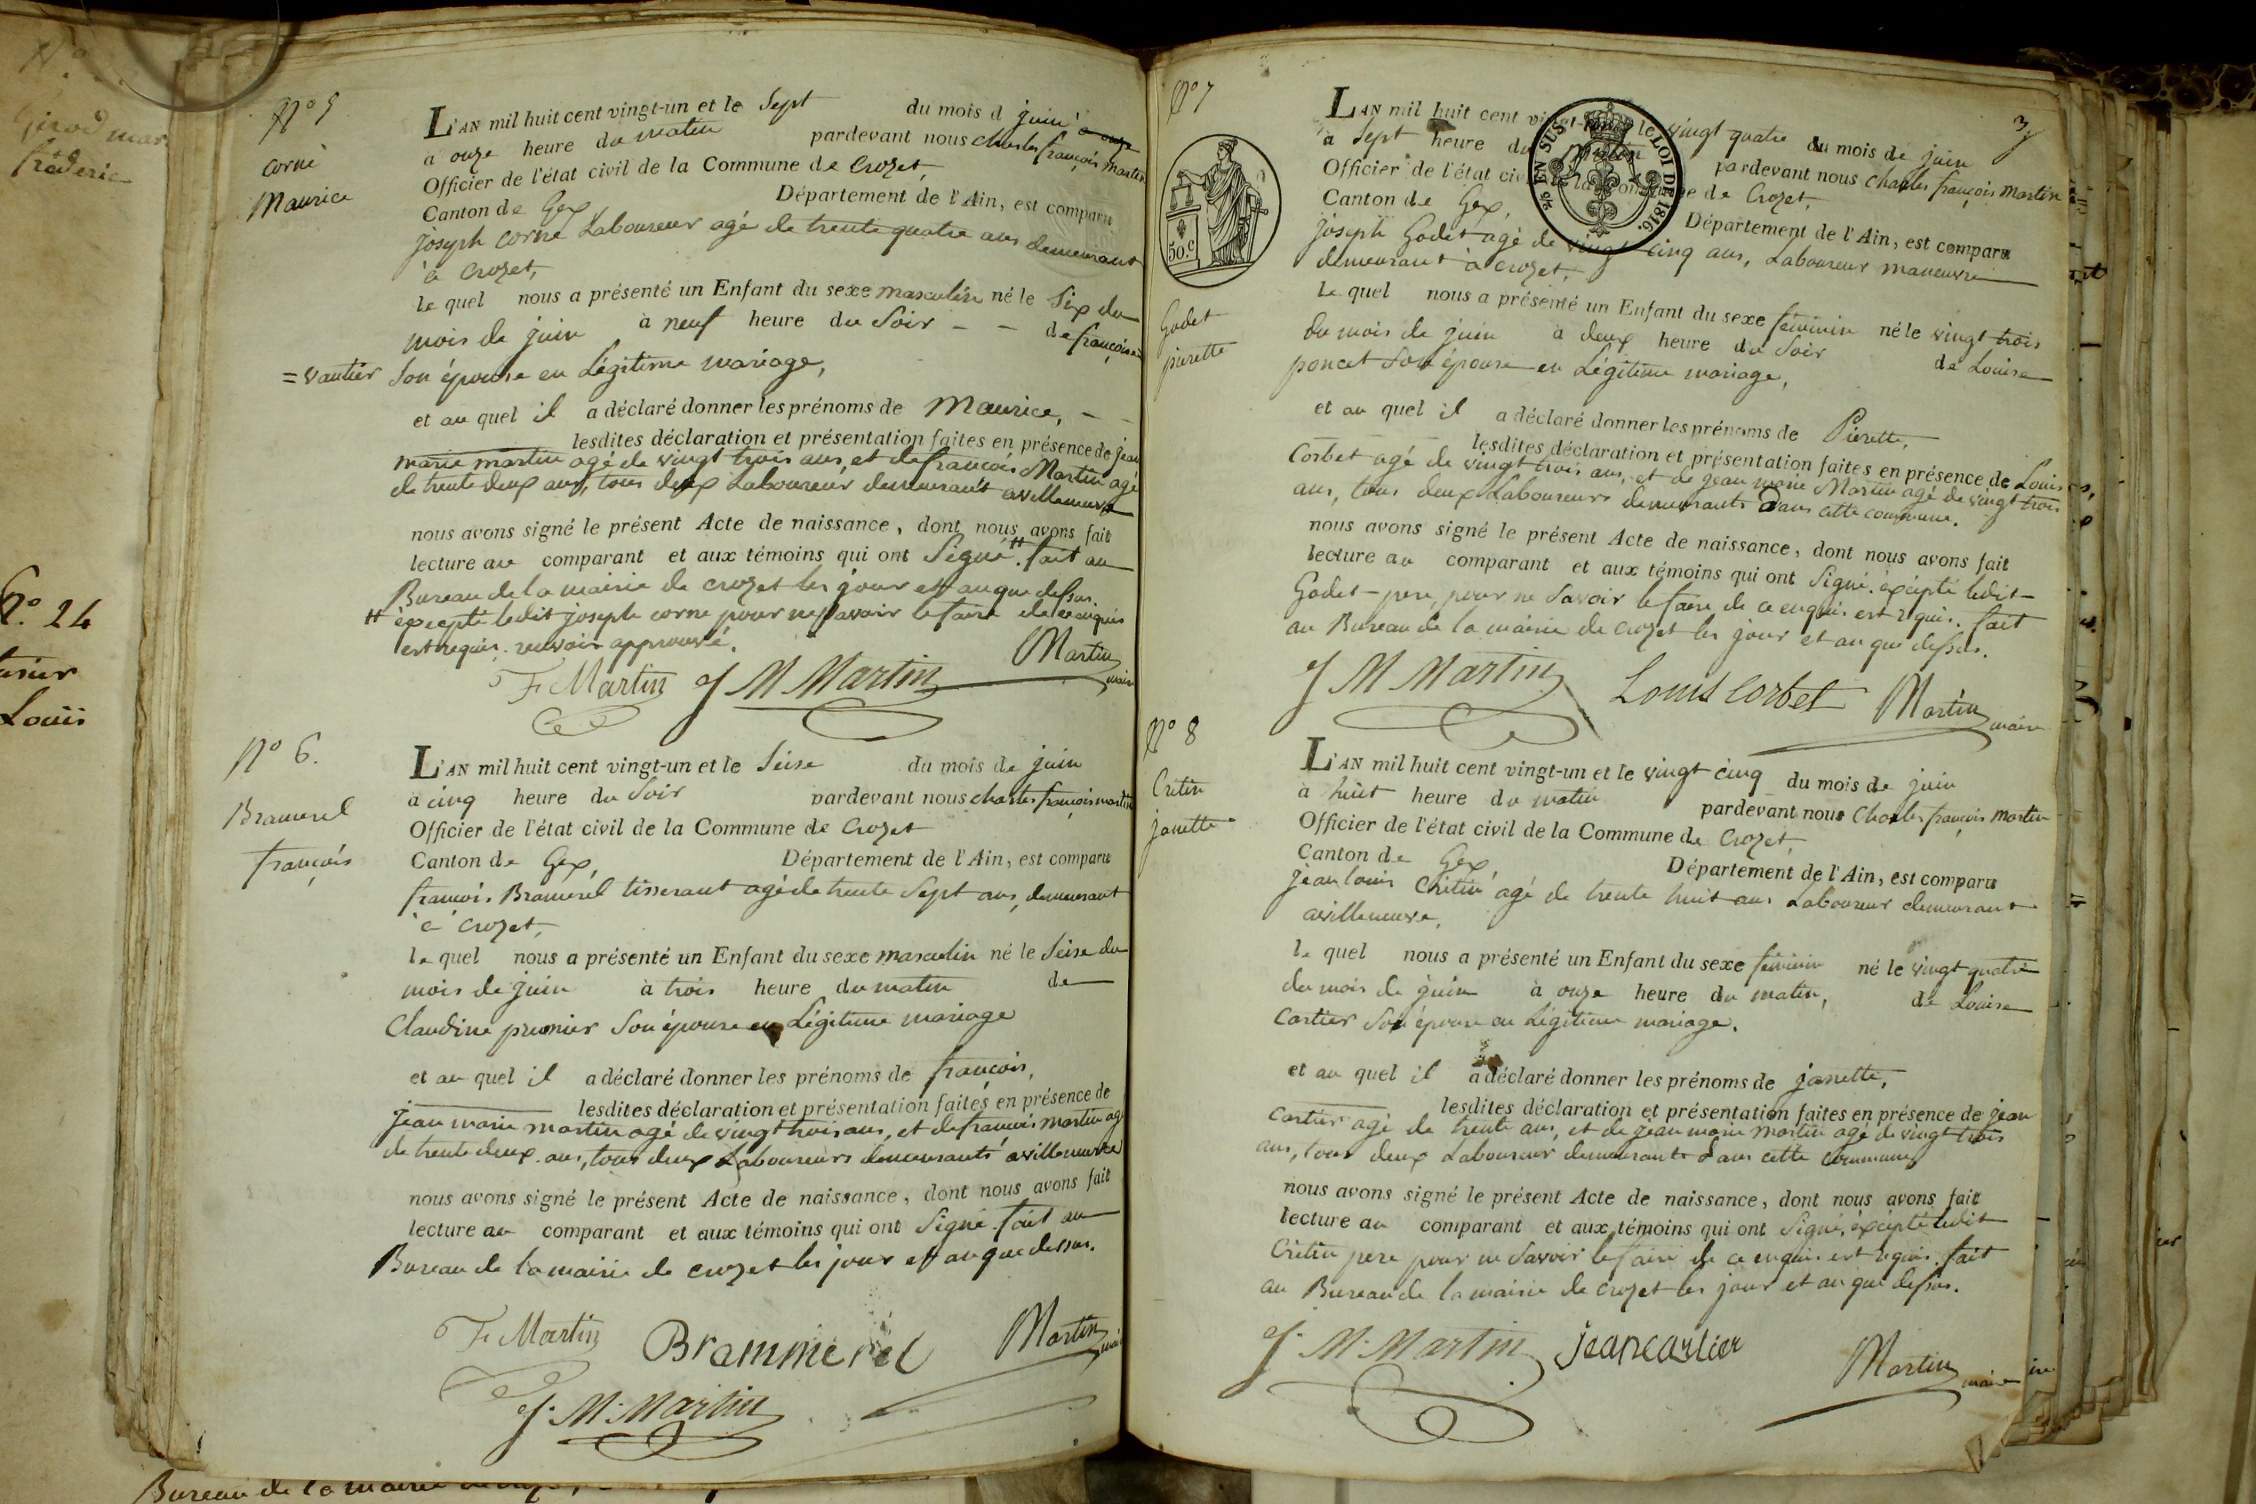 Nº 5
corne
Maurice
L'AN mil huit cent vingt-un et le Sept du mois d juin
à onze heure du matin pardevant nous charles françois martin
Officier de l'état civil de la Commune de Crozet,
Canton de Gex, Département de l'Ain, est comparu
joseph corne Laboureur agé de trente quatre ans demeurant
à Crozet,
le quel nous a présenté un Enfant du sexe masculin né le Six du
mois de juin à neuf heure du Soir - - de françoise
= vautier Son épouse en Légitime mariage,
et au quel il a déclaré donner les prénoms de Maurice, - -
lesdites déclaration et présentation faites en présence de jean
marie martin agé de vingt trois ans, et de françois Martin agé
de trente deux ans, tous deux Laboureur demeurants avilleneuve
nous avons signé le présent Acte de naissance, dont nous avons fait
lecture au comparant et aux témoins qui ont Signé # fait au
Bureau de la mairie de crozet les jour et an que dessus.
# éxcepté ledit joseph corne pour ne savoir le faire de ce enquis
est requis. renvoi approuvé.
F Martin J M Martin Martin maire
Nº 6.
Bramerel
françois
L'AN mil huit cent vingt-un et le Seise du mois de juin
à cinq heure du Soir pardevant nous charles françois martin
Officier de l'état civil de la Commune de Crozet
Canton de Gex, Département de l'Ain, est comparu
françois Bramerel tisserant agé de trente Sept ans, demeurant
à Crozet,
le quel nous a présenté un Enfant du sexe masculin né le Seise du
mois de juin à trois heure du matin de
Claudine prunier Son épouse en Légitime mariage
et au quel il a déclaré donner les prénoms de françois,
lesdites déclaration et présentation faites en présence de
jean marie martin agé de vingt trois ans, et de françois martin agé
de trente deux ans, tous deux Laboureurs demeurants avilleneuve
nous avons signé le présent Acte de naissance, dont nous avons fait
lecture au comparant et aux témoins qui ont Signé. fait au
Bureau de la mairie de crozet les jour et an que dessus.
F Martin Brammerel Martin
J. M. Martin
Nº 7
3
50.c
EN SUS LOI DE 1816.
Godet
pierette
L'AN mil huit cent vingt-un et le vingt quatre du mois de juin
à Sept heure du matin pardevant nous charles françois martin
Officier de l'état civil de la Commune de Crozet,
Canton de Gex, Département de l'Ain, est comparu
joseph Godet agé de vingt cinq ans, Laboureur maneuvre
demeurant à crozet,
le quel nous a présenté un Enfant du sexe féminin né le vingt trois
du mois de juin à deux heure du Soir de Louise
poncet Son épouse en Légitime mariage,
et au quel il a déclaré donner les prénoms de Pierette,
lesdites déclaration et présentation faites en présence de Louis
Corbet agé de vingt trois ans, et de jean marie Martin agé de vingt trois
ans, tous deux Laboureurs demeurants Dans cette commune.
nous avons signé le présent Acte de naissance, dont nous avons fait
lecture au comparant et aux témoins qui ont Signé. éxcépté ledit
Godet pere, pour ne Savoir le faire de ce enquis. est requis. fait
au Bureau de la mairie de crozet les jour et an que dessus.
J M Martin Louis Corbet Martin maire
Nº 8
Critin
janette
L'AN mil huit cent vingt-un et le vingt cinq du mois de juin
à huit heure du matin pardevant nous Charles françois martin
Officier de l'état civil de la Commune de Crozet,
Canton de Gex Département de l'Ain, est comparu
jean louis Critin agé de trente huit ans Laboureur demeurant
avilleneuve,
le quel nous a présenté un Enfant du sexe féminin né le vingt quatre
du mois de juin à onze heure du matin, de Louise
Cartier Son épouse en Légitime mariage.
et au quel il a déclaré donner les prénoms de janette,
lesdites déclaration et présentation faites en présence de jean
Cartier agé de trente ans, et de jean marie martin agé de vingt trois
ans, tous deux Laboureur demeurants dans cette commune,
nous avons signé le présent Acte de naissance, dont nous avons fait
lecture au comparant et aux témoins qui ont Signé, éxcépté ledit
Critin pere pour ne Savoir le faire de ce enquis est requis. fait
au Bureau de la mairie de crozet les jour et an que dessus.
J. M. Martin jean cartier Martin maire
Girod
frederic
Nº 24
Louis
Bureau de la mairie